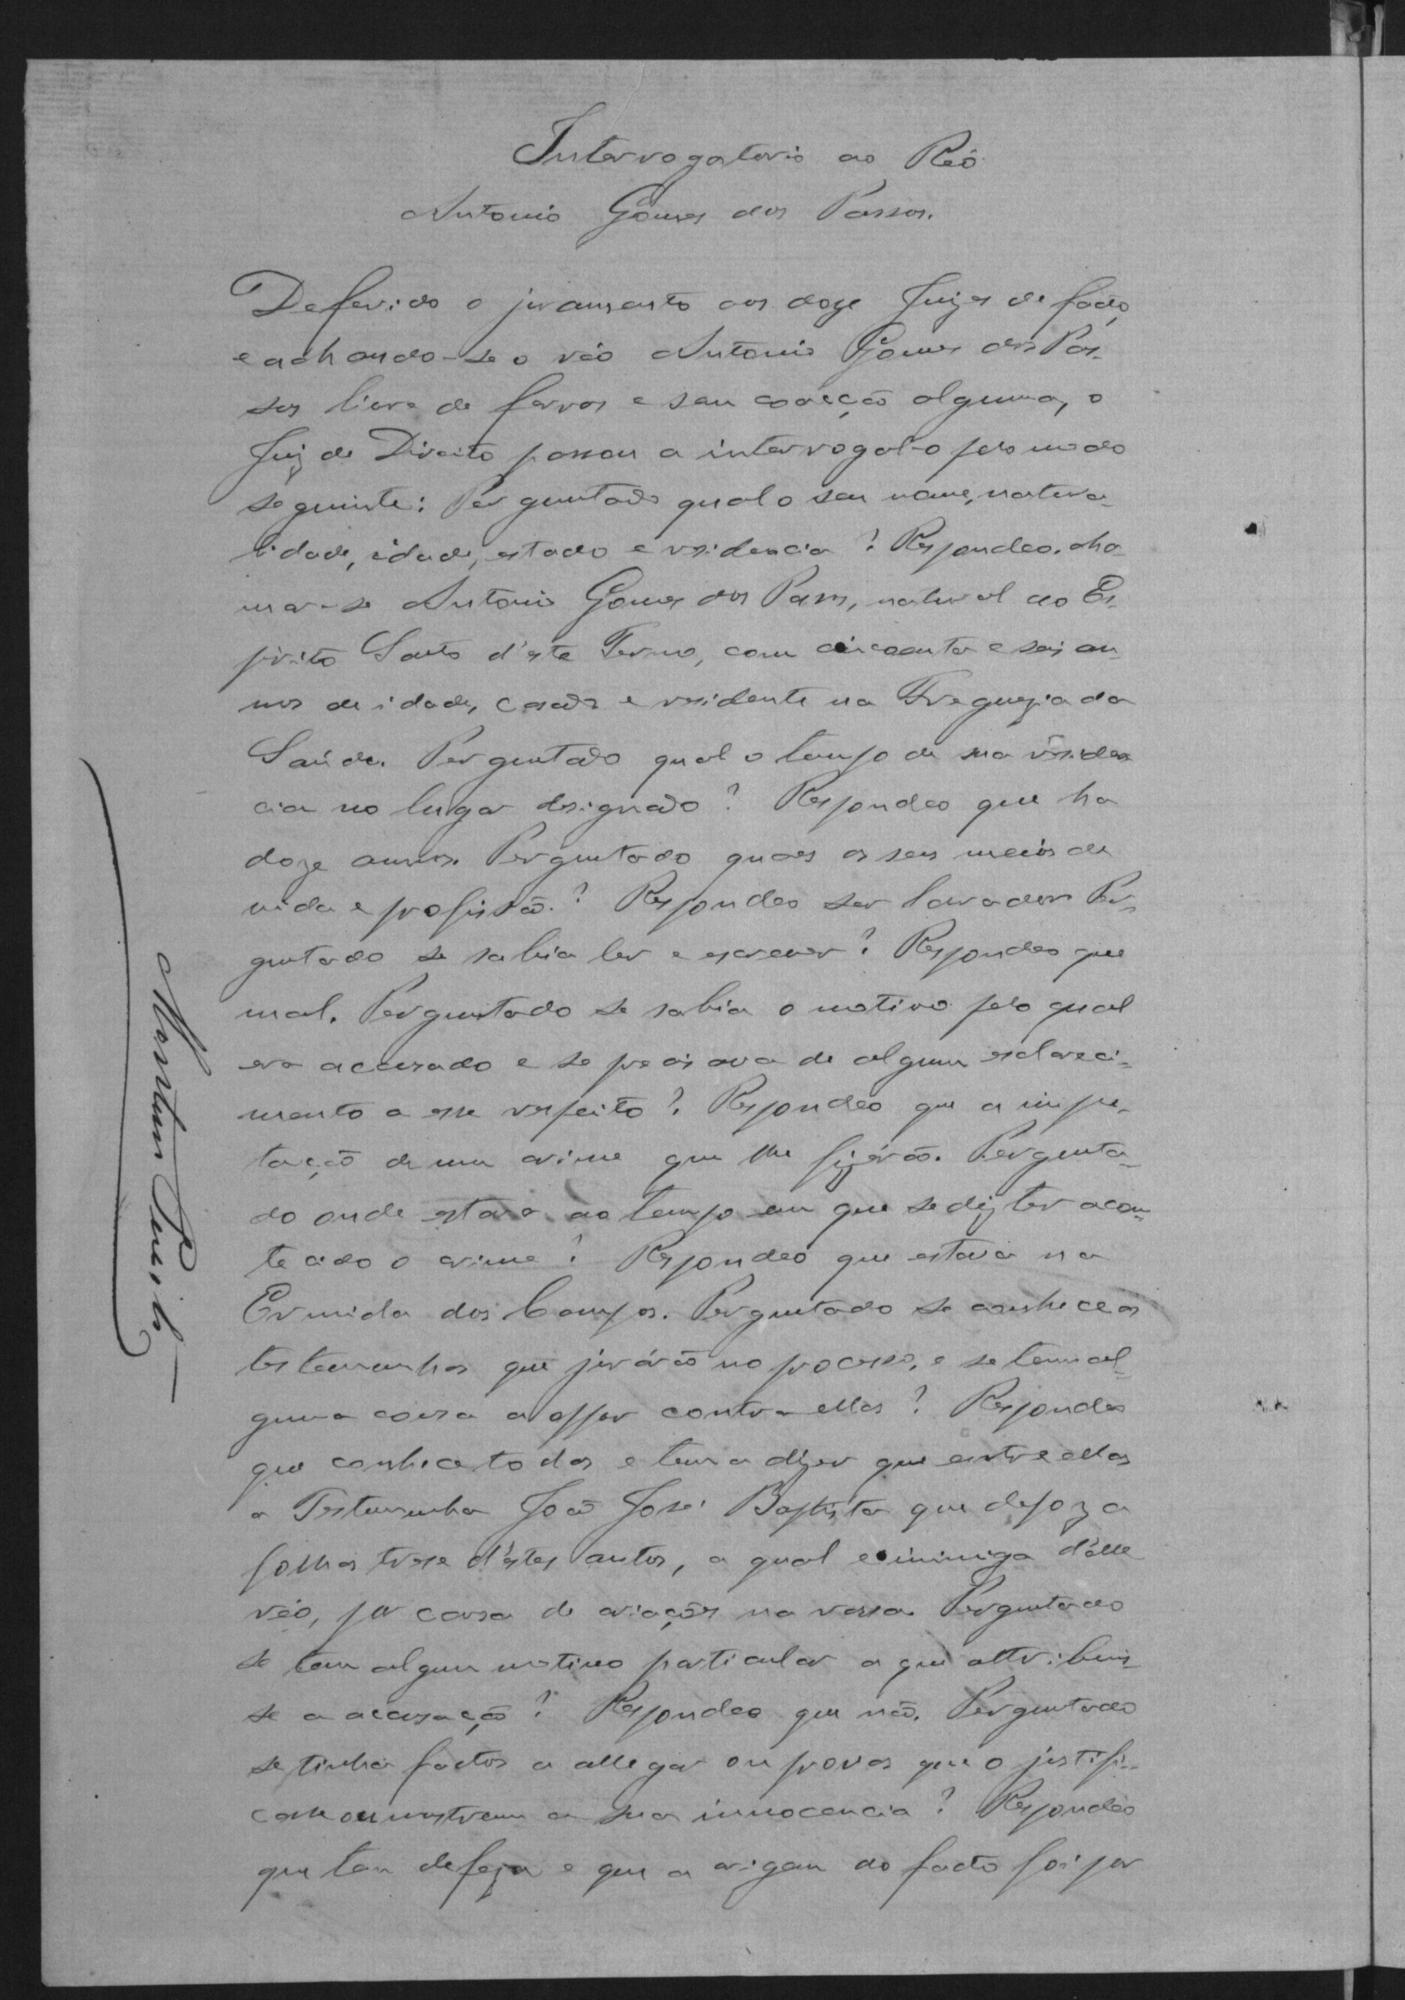 Interrogatorio ao Réo
Antonio Gomes dos Passos.
Deferido o juramento aos doze Juizes de facto,
e achando-se o réo Antonio Gomes dos Pas-
sos livre de ferros e sem coacção alguma, o
Juiz de Direito passou a interrogal-o pelo modo
seguinte: Perguntado qual o seu nome, natura-
lidade, idade, estado e residencia? Respondeo cha-
mar-se Antonio Gomes dos Passos, natural do Es-
pirito Santo d'este Termo, com cincoenta e seis an-
nos de idade, casado e residente na Freguezia da
Saúde. Perguntado qual o tempo de sua residen
cia no lugar designado? Respondeo que ha
doze annos. Perguntado quaes os seus meios de
vida e profissão? Respondeo ser lavrador. Per-
guntado se sabia ler e escrever? Respondeo que
mal. Perguntado se sabia o motivo pelo qual
era accusado e se precisava de algum esclareci-
mento a esse respeito? Respondeo que a impu-
tação de um crime que lhe fizérão. Pergunta-
do onde estava ao tempo em que se diz ter acon-
tecido o crime? Respondeo que estava na
Ermida dos Campos. Perguntado se conhece as
testemunhas que jurárão no processo, e se tem al-
guma cousa a oppor contra ellas? Respondeo
que conhece todas e tem a dizer que entre ellas
a Testemunha João José Baptista que depoz a
folhas treze d'estes autos, a qual é inimiga d'elle
réo, por causa de criações na rossa. Perguntado
se tem algum motivo particular a que attribuis-
se a accusação? Respondeo que não. Perguntado
se tinha factos a allegar ou provas que o justifi-
casse ou mostrem a sua innocencia? Respondeo
que tem defeza e que a origem do facto foi por